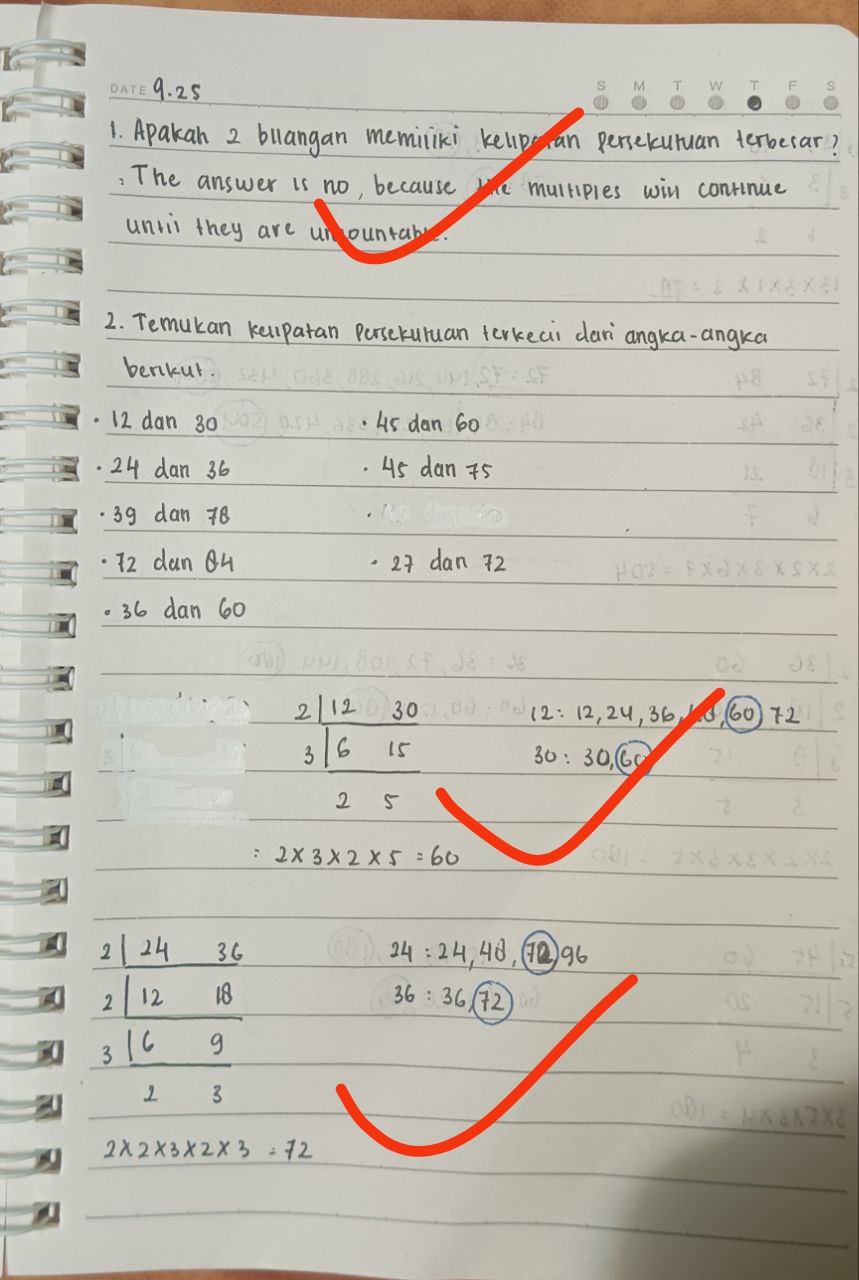 DATE 9.25
S M T W T F S
1. Apakah 2 bilangan memiliki kelipatan persekutuan terbesar?
. The answer is no, because the multiples will continue
until they are uncountable.
2. Temukan kelipatan persekutuan terkecil dari angka-angka
berikut.
• 12 dan 30 • 45 dan 60
• 24 dan 36 • 45 dan 75
• 39 dan 78 •
• 72 dan 84 • 27 dan 72
• 36 dan 60
2 | 12 30 12: 12, 24, 36, 48, 60, 72
3 | 6 15 30: 30, 60
2 5
= 2 x 3 x 2 x 5 = 60
2 | 24 36 24 : 24, 48, 72, 96
2 | 12 18 36 : 36, 72
3 | 6 9
2 3
2 x 2 x 3 x 2 x 3 = 72